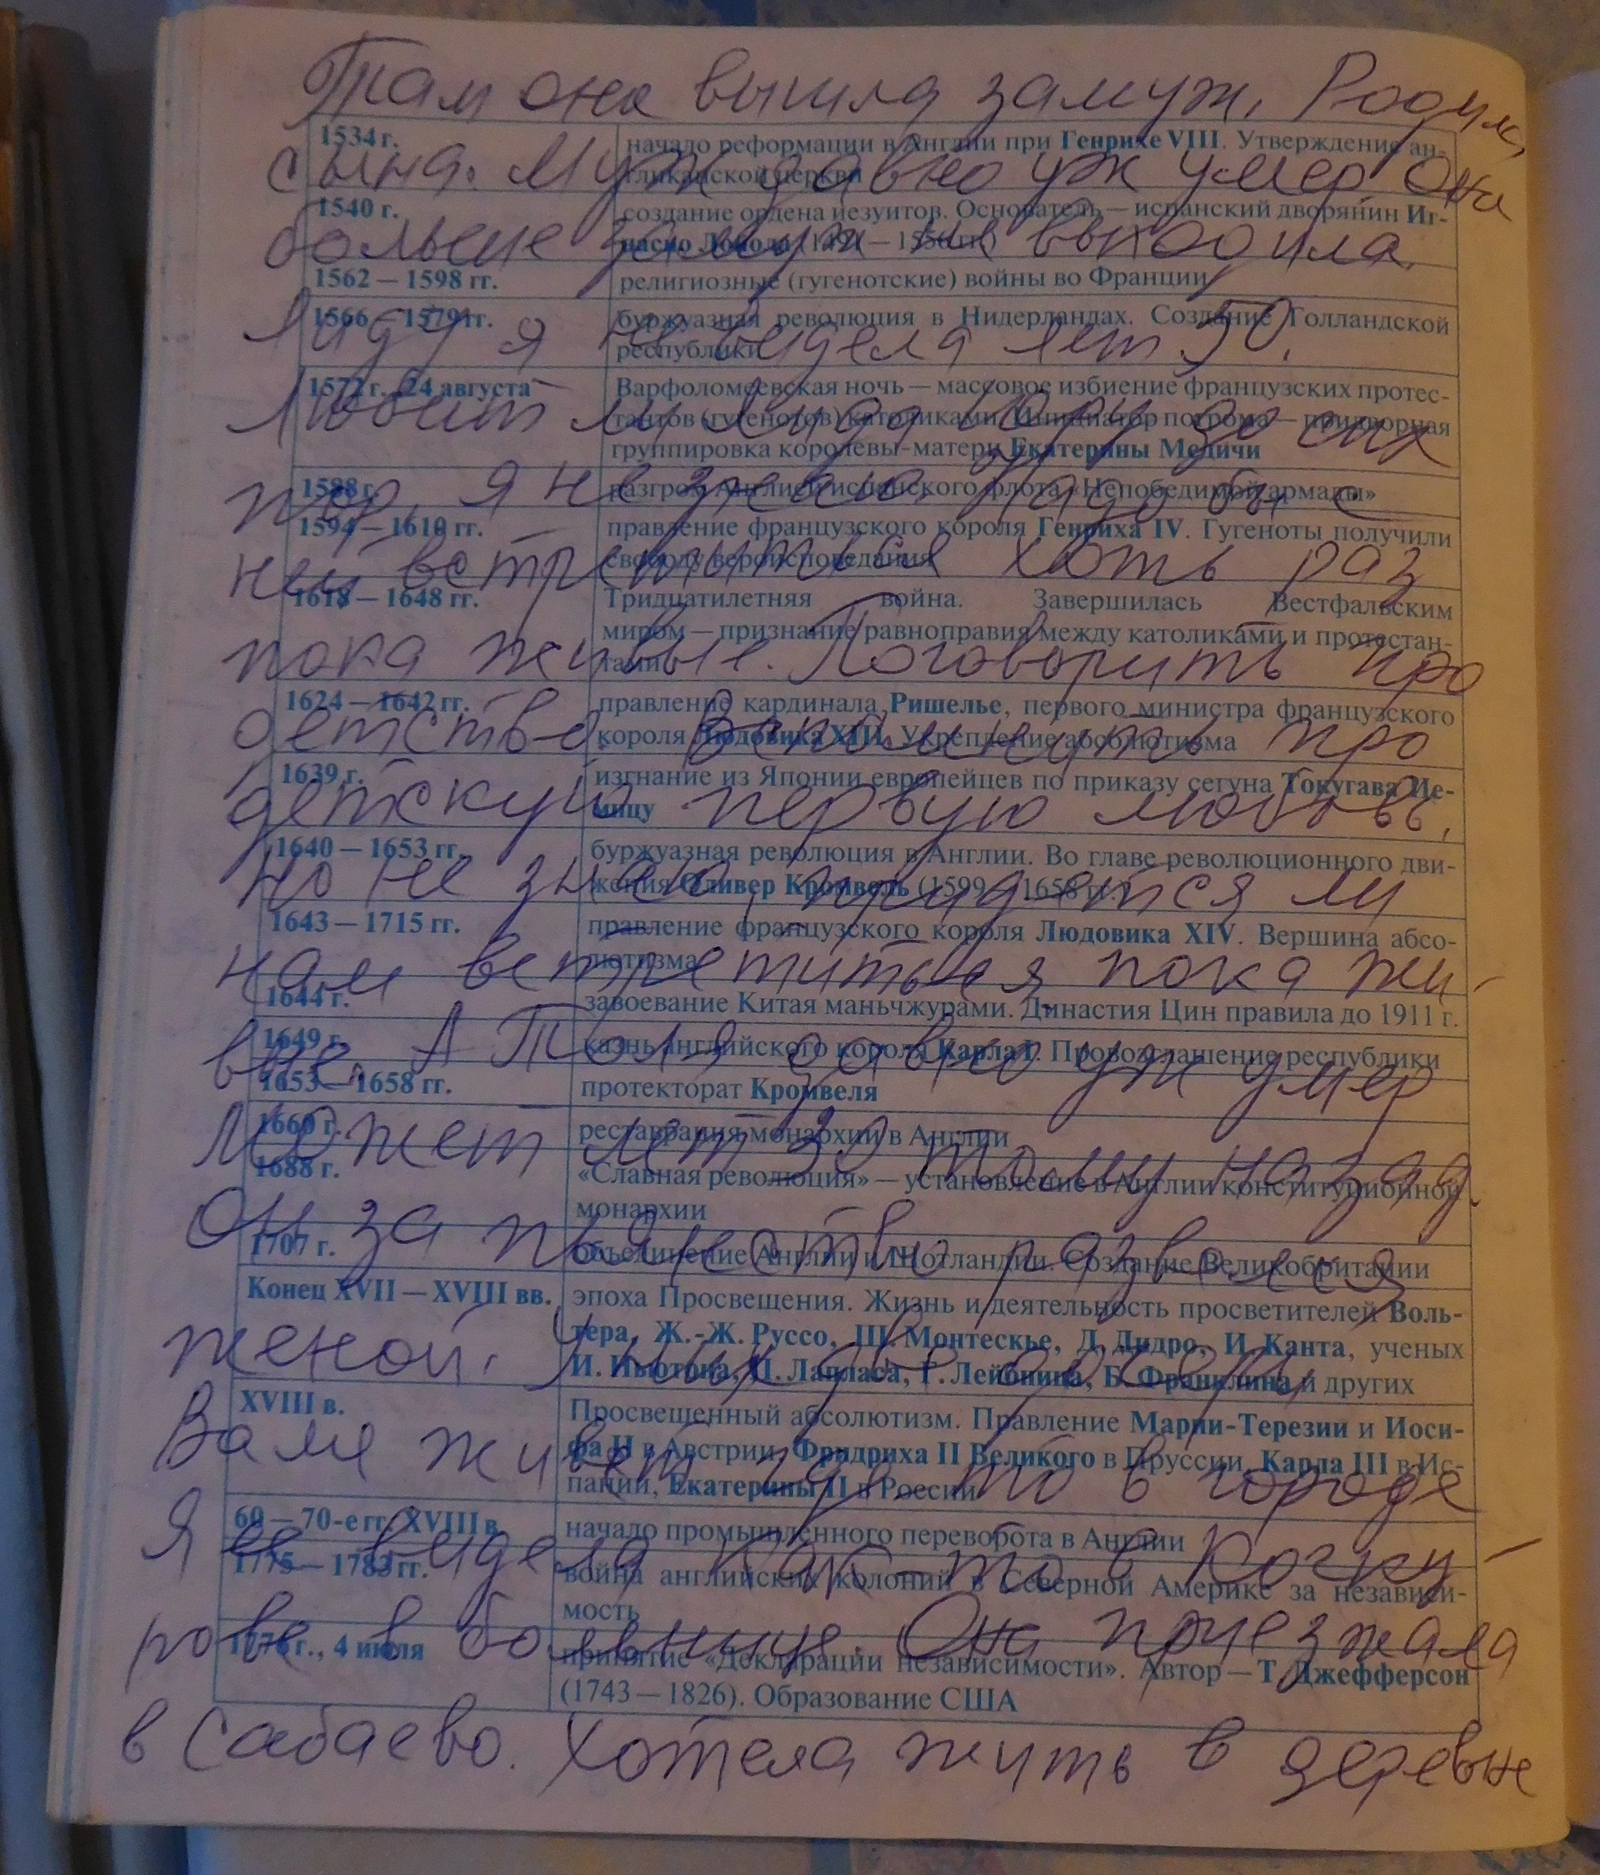 Там она вышла замуж. Родила
1534 г. начало реформации в Англии при Генрихе VIII. Утверждение ан-
гликанской церкви
сына. Муж давно уж умер Она
1540 г. создание ордена иезуитов. Основатель — испанский дворянин Иг-
насио Лойола
больше замуж не выходила.
1562 — 1598 гг. религиозные (гугенотские) войны во Франции
1566 — 1579 гг. буржуазная революция в Нидерландах. Создание Голландской
республики
Лиду я не видела лет 50.
1572 г., 24 августа Варфоломеевская ночь — массовое избиение французских протес-
тантов (гугенотов) католиками. Инициатор погрома — придворная
Любит ли Лида до сих
группировка королевы-матери Екатерины Медичи
1588 г. разгром Англией испанского флота «Непобедимой армады»
пор, я не знаю, надо бы с
1594 — 1610 гг. правление французского короля Генриха IV. Гугеноты получили
свободу вероисповедания
ней встретиться хоть раз
1618 — 1648 гг. Тридцатилетняя война. Завершилась Вестфальским
миром — признание равноправия между католиками и протестан-
тами
пока живые. Поговорить про
1624 — 1642 гг. правление кардинала Ришелье, первого министра французского
короля Людовика XIII. Укрепление абсолютизма
детство. Вспомнуть про
1639 г. изгнание из Японии европейцев по приказу сегуна Токугава Ие-
мицу
детскую первую любовь,
1640 — 1653 гг. буржуазная революция в Англии. Во главе революционного дви-
жения Оливер Кромвель (1599 — 1658 гг.)
но не знаю придется ли
1643 — 1715 гг. правление французского короля Людовика XIV. Вершина абсо-
лютизма
нам встретиться, пока жи-
1644 г. завоевание Китая маньчжурами. Династия Цин правила до 1911 г.
1649 г. казнь английского короля Карла I. Провозглашение республики
вые. А Толя давно уж умер
1653 — 1658 гг. протекторат Кромвеля
1660 г. реставрация монархии в Англии
Может лет 30 тому назад.
1688 г. «Славная революция» — установление в Англии конституционной
монархии
Он за пьянство развелся
1707 г. объединение Англии и Шотландии. Создание Великобритании
Конец XVII — XVIII вв. эпоха Просвещения. Жизнь и деятельность просветителей Воль-
тера, Ж.-Ж. Руссо, Ш. Монтескье, Д. Дидро, И. Канта, ученых
женой. У них две дочери
И. Ньютона, П. Лапласа, Г. Лейбница, Б. Франклина и других
XVIII в. Просвещенный абсолютизм. Правление Марии-Терезии и Иоси-
фа II в Австрии, Фридриха II Великого в Пруссии, Карла III в Ис-
Валя живет где-то в городе
пании, Екатерины II в России
60 — 70-е гг. XVIII в. начало промышленного переворота в Англии
Я ее видела как-то в Кочку-
1775 — 1783 гг. война английских колоний в Северной Америке за независи-
мость
рове в больнице. Она приезжала
1776 г., 4 июля принятие «Декларации независимости». Автор — Т. Джефферсон
(1743 — 1826). Образование США
в Сабаево. Хотела жить в деревне